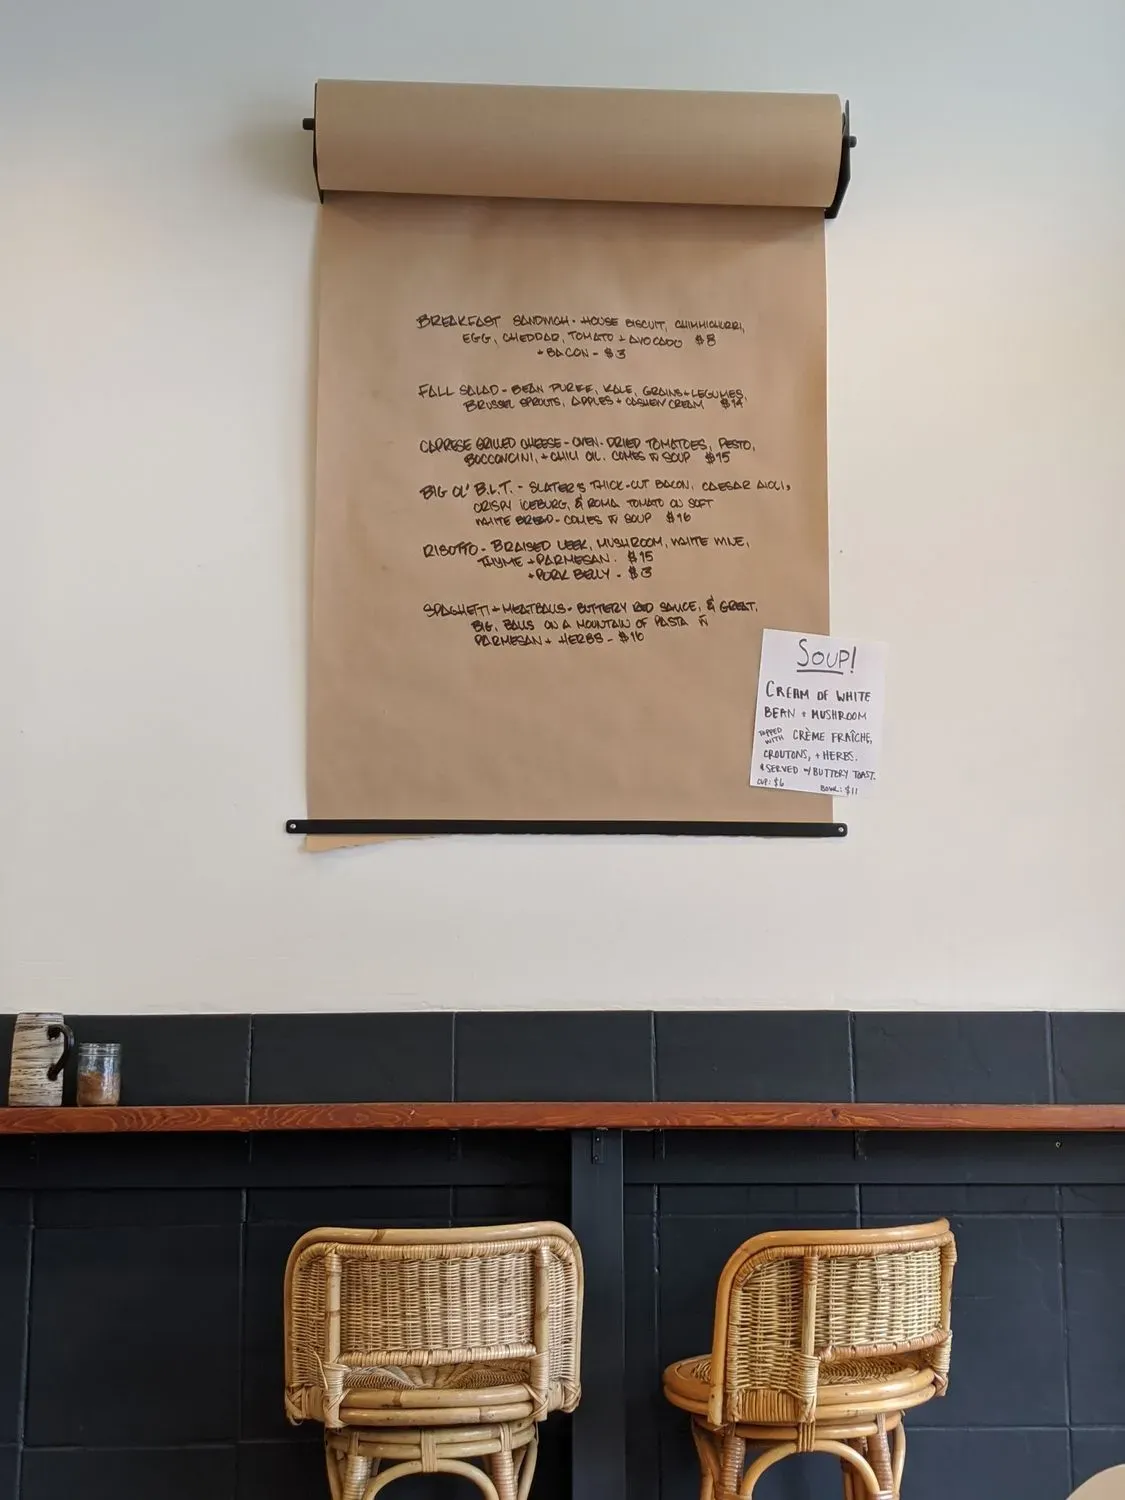 BREAKFAST SANDWICH - HOUSE BISCUIT, CHIMMICHURRI,
EGG, CHEDDAR, TOMATO + AVOCADO $8
+ BACON - $3
FALL SALAD - BEAN PUREE, KALE, GRAINS + LEGUMES,
BRUSSEL SPROUTS, APPLES + CASHEW CREAM $14
CAPRESE GRILLED CHEESE - OVEN-DRIED TOMATOES, PESTO,
BOCCONCINI, + CHILI OIL. COMES W SOUP $15
BIG OL' B.L.T. - SLATER'S THICK-CUT BACON, CAESAR AIOLI,
CRISPY ICEBURG, & ROMA TOMATO ON SOFT
WHITE BREAD - COMES W SOUP $16
RISOTTO - BRAISED LEEK, MUSHROOM, WHITE WINE,
THYME + PARMESAN. $15
+ PORK BELLY - $3
SPAGHETTI + MEATBALLS - BUTTERY RED SAUCE, & GREAT,
BIG, BALLS ON A MOUNTAIN OF PASTA W
PARMESAN + HERBS - $16
SOUP!
CREAM OF WHITE
BEAN + MUSHROOM
TOPPED WITH CRÈME FRAÎCHE,
CROUTONS, + HERBS.
& SERVED W/ BUTTERY TOAST.
CUP: $6 BOWL: $11